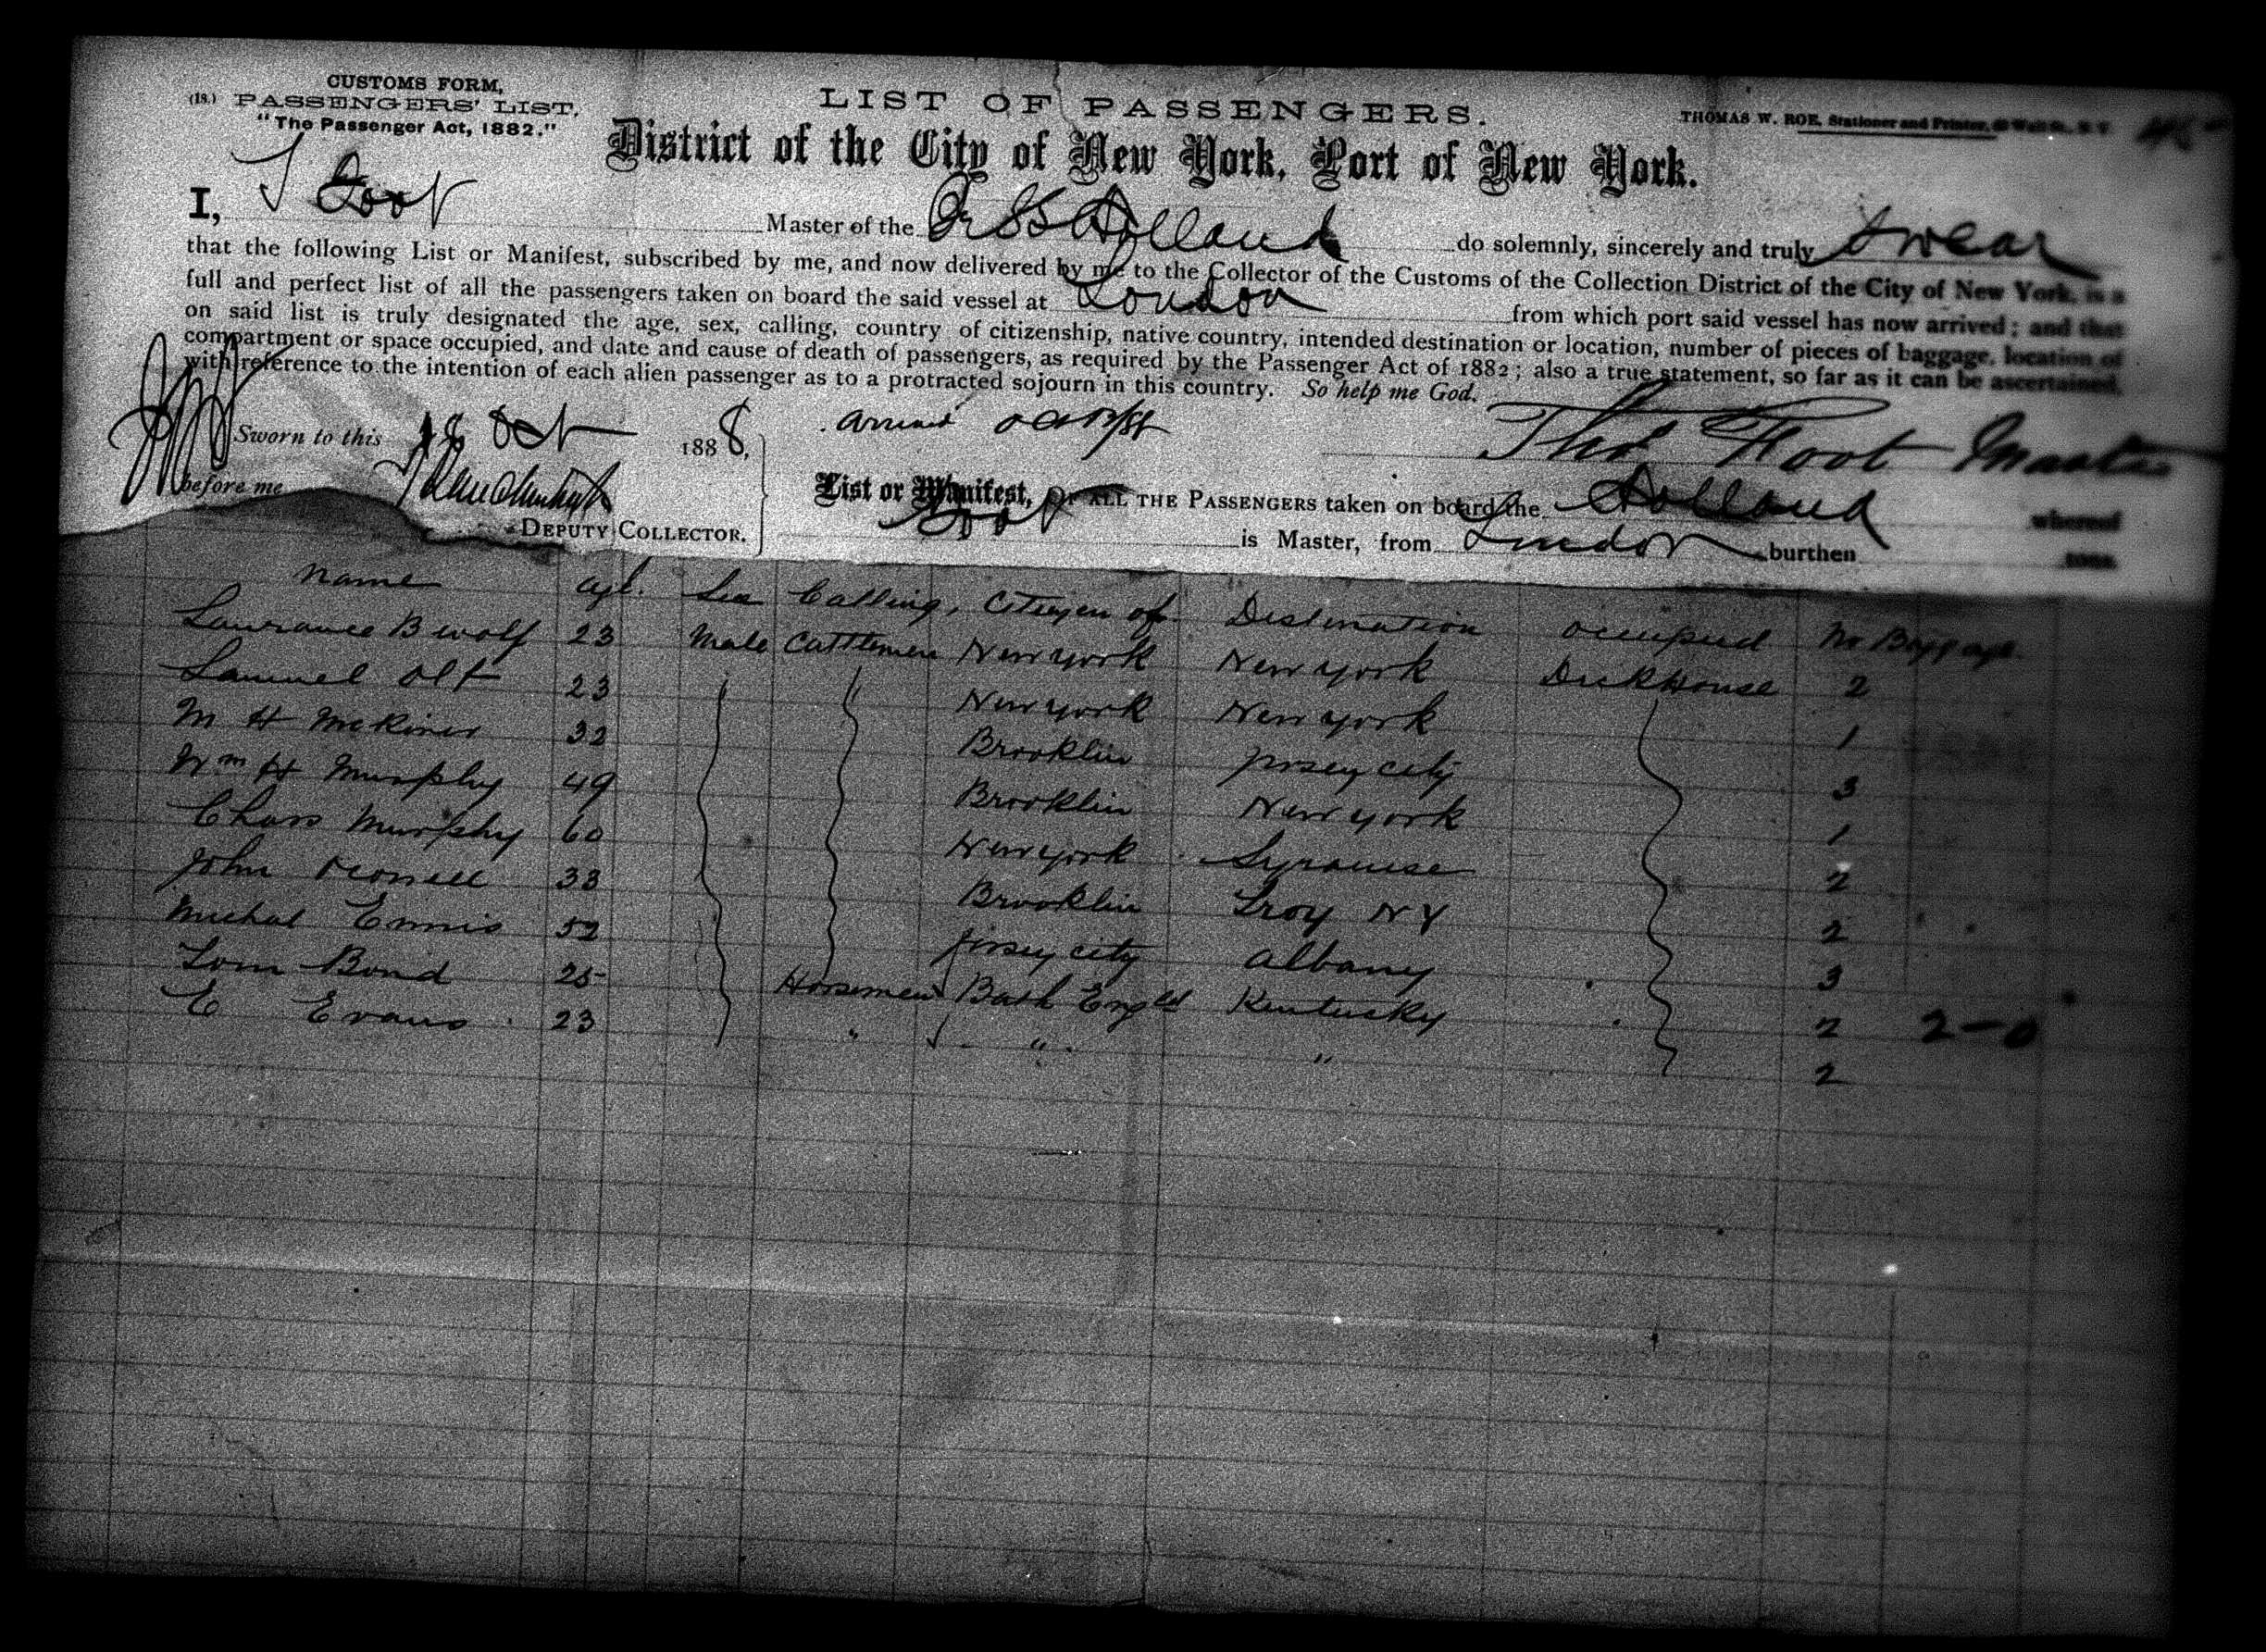 CUSTOMS FORM,
(18.) PASSENGERS' LIST.
"The Passenger Act, 1882."
LIST OF PASSENGERS.
THOMAS W. ROE, Stationer and Printer,
District of the City of New York, Port of New York.
I, T Foot Master of the Br SS Holland do solemnly, sincerely and truly swear
that the following List or Manifest, subscribed by me, and now delivered by me to the Collector of the Customs of the Collection District of the City of New York, is a
full and perfect list of all the passengers taken on board the said vessel at London from which port said vessel has now arrived; and that
on said list is truly designated the age, sex, calling, country of citizenship, native country, intended destination or location, number of pieces of baggage, location of
compartment or space occupied, and date and cause of death of passengers, as required by the Passenger Act of 1882; also a true statement, so far as it can be ascertained,
with reference to the intention of each alien passenger as to a protracted sojourn in this country. So help me God.
Sworn to this 18 Oct 1888, arrived Thos Foot Master
before me
DEPUTY COLLECTOR.
List or Manifest, OF ALL THE PASSENGERS taken on board the Holland whereof
Foot is Master, from London burthen tons.
name age. Sex Calling, Citizen of Destination occupied No Baggage.
Laurance B Wolf 23 Male Cattlemen New york New york DeckHouse 2
Samuel Olt 23 New york New york 1
M H 32 Brooklin Jersey city 3
Wm H Murphy 49 Brooklin New york 1
Chars Murphy 60 New york Syracuse 2
John 33 Brooklin Troy N Y 2
Michal Ennis 52 Jersey city Albany 3
Tom Bond 25 Horsemen Bath Engld Kentucky 2 2-0
E Evans 23 " " " 2